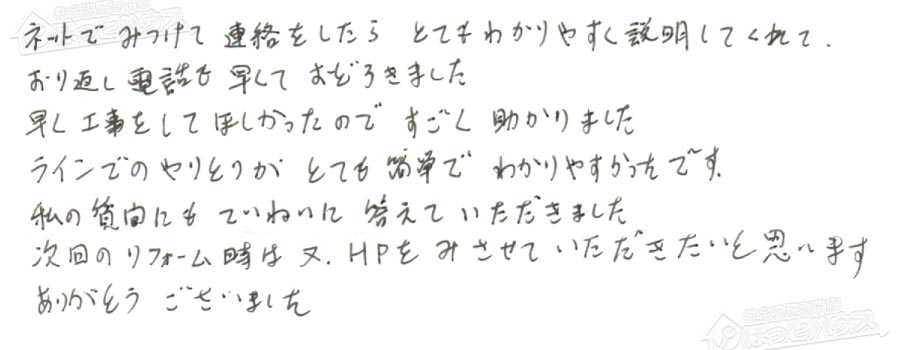 ネットでみつけて 連絡をしたら とてもわかりやすく説明してくれて、
おり返し電話も 早くて おどろきました
早く工事をしてほしかったので すごく 助かりました
ラインでのやりとりが とても 簡単で わかりやすかったです。
私の質問にも ていねいに 答えて いただきました
次回のリフォーム時は 又、HPを みさせていただきたいと思います
ありがとう ございました
ほっとハウス